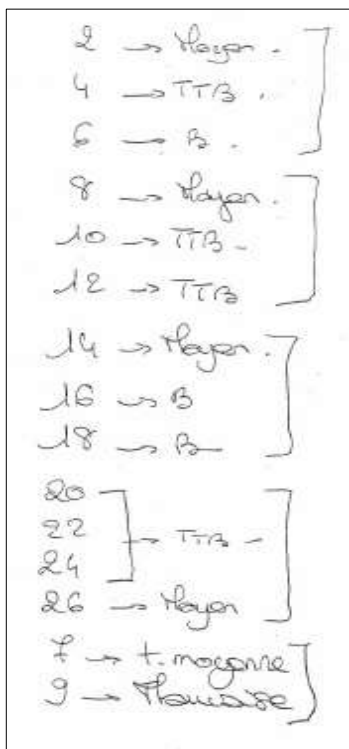 2 → Moyen.
4 → TTB.
6 → B.
8 → Moyen.
10 → TTB -
12 → TTB
14 → Moyen.
16 → B
18 → B
20
22 → TTB -
24
26 → Moyen
7 → t. moyenne
9 → Mauvaise